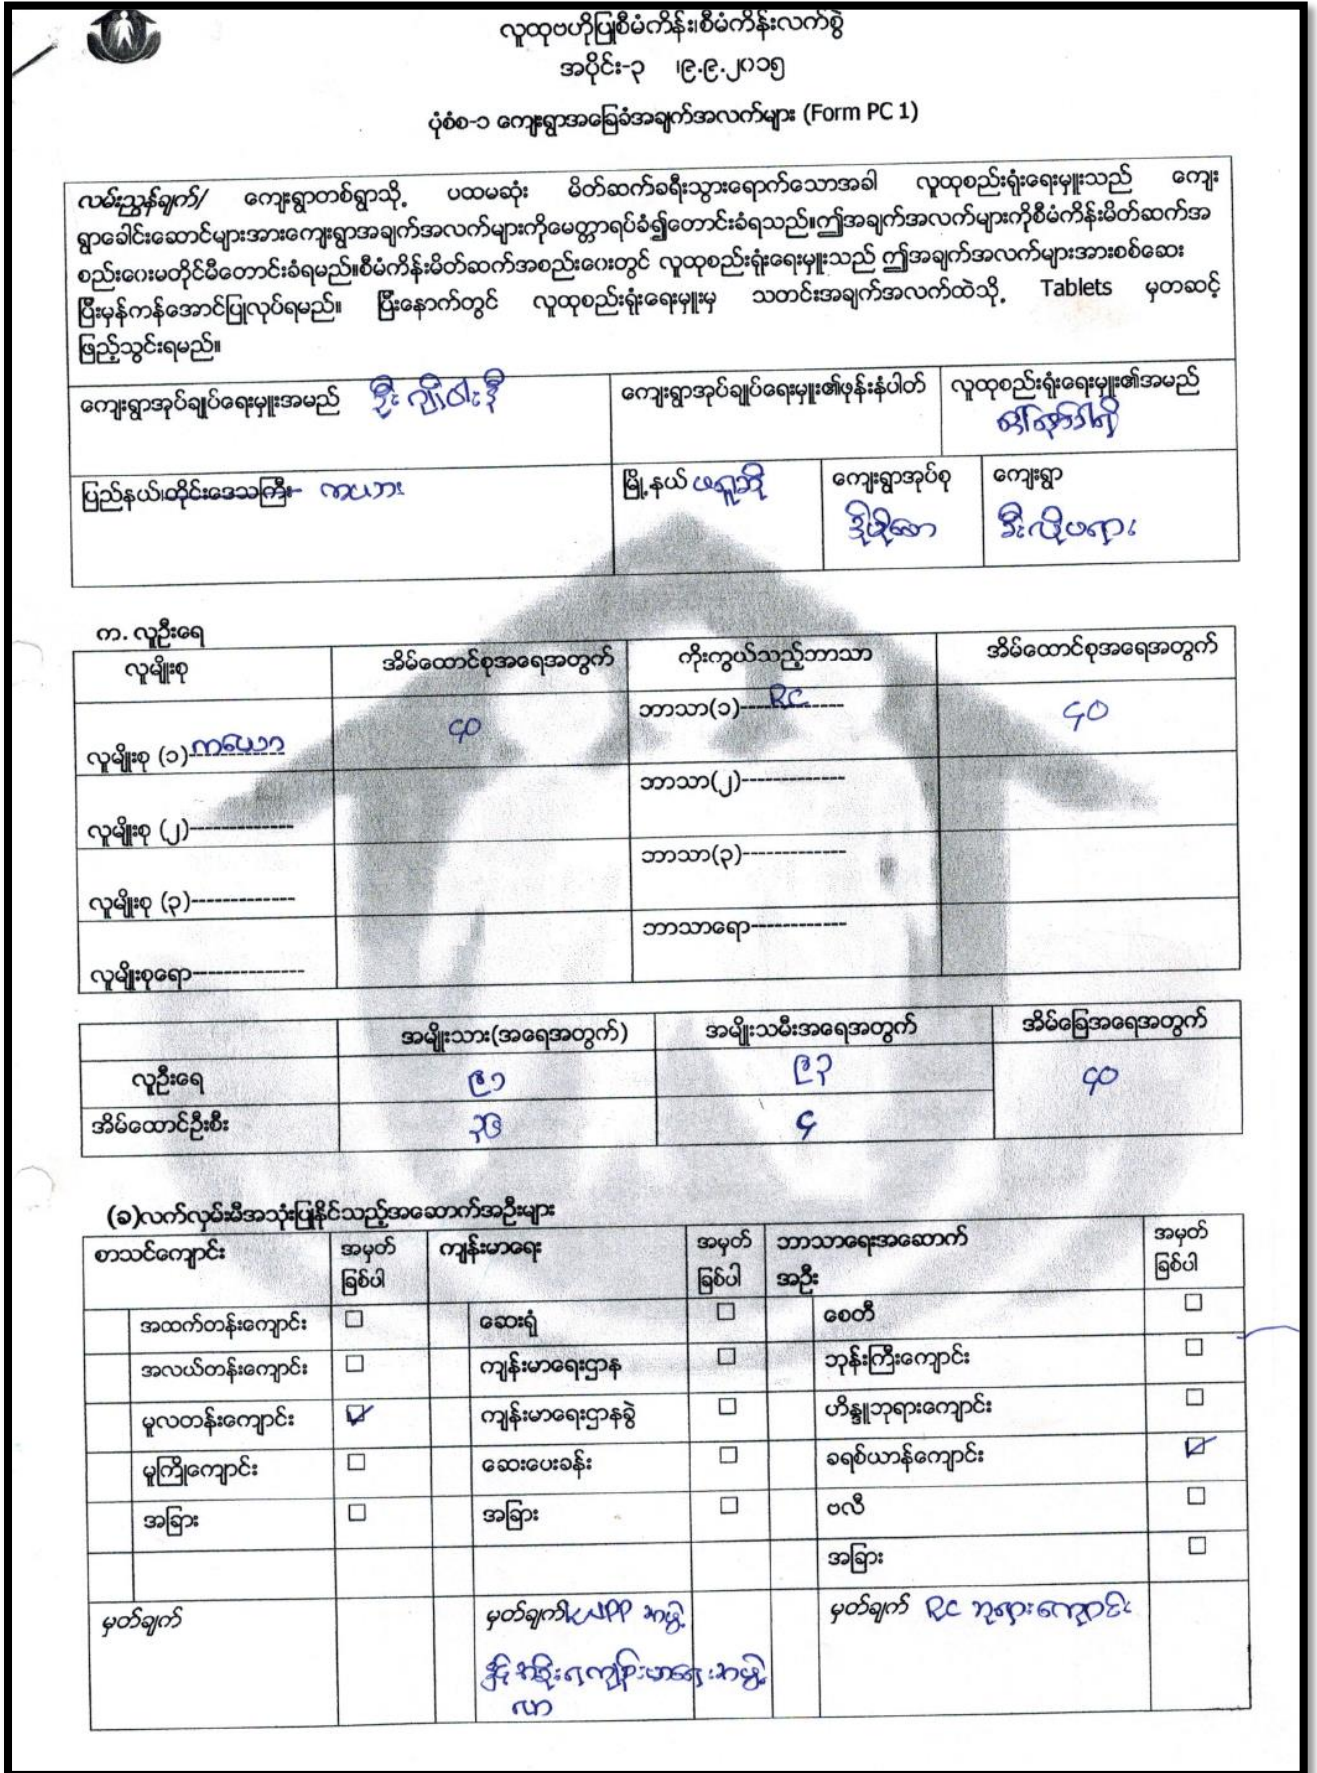 လူထုဗဟိုပြုစီမံကိန်း၊စီမံကိန်းလက်စွဲ
အပိုင်း-၃ ၊၉.၉.၂၀၁၅
ပုံစံစ-၁ ကျေးရွာအခြေခံအချက်အလက်များ (Form PC 1)
လမ်းညွှန်ချက်/ ကျေးရွာတစ်ရွာသို့ ပထမဆုံး မိတ်ဆက်ခရီးသွားရောက်သောအခါ လူထုစည်းရုံးရေးမှူးသည် ကျေး
ရွာခေါင်းဆောင်များအားကျေးရွာအချက်အလက်များကိုမေတ္တာရပ်ခံ၍တောင်းခံရသည်။ဤအချက်အလက်များကိုစီမံကိန်းမိတ်ဆက်အ
စည်းဝေးမတိုင်မီတောင်းခံရမည်။စီမံကိန်းမိတ်ဆက်အစည်းဝေးတွင် လူထုစည်းရုံးရေးမှူးသည် ဤအချက်အလက်များအားစစ်ဆေး
ပြီးမှန်ကန်အောင်ပြုလုပ်ရမည်။ ပြီးနောက်တွင် လူထုစည်းရုံးရေးမှူးမှ သတင်းအချက်အလက်ထဲသို့ Tablets မှတဆင့်
ဖြည့်သွင်းရမည်။
ကျေးရွာအုပ်ချုပ်ရေးမှူးအမည် ဦး ကျော်ဝါးဒီ ကျေးရွာအုပ်ချုပ်ရေးမှူး၏ဖုန်းနံပါတ် လူထုစည်းရုံးရေးမှူး၏အမည်
ပြည်နယ်၊တိုင်းဒေသကြီး- ကယား မြို့နယ် ဖရူဆို ကျေးရွာအုပ်စု ကျေးရွာ
ဒိုမိုစော ခီးလိုဖရား
က. လူဦးရေ
လူမျိုးစု အိမ်ထောင်စုအရေအတွက် ကိုးကွယ်သည့်ဘာသာ အိမ်ထောင်စုအရေအတွက်
လူမျိုးစု (၁) ကယော ၄၀ ဘာသာ(၁) RC ၄၀
လူမျိုးစု (၂)------------- ဘာသာ(၂)-------------
လူမျိုးစု (၃)------------- ဘာသာ(၃)-------------
လူမျိုးစုရော-------------- ဘာသာရော------------
အမျိုးသား(အရေအတွက်) အမျိုးသမီးအရေအတွက် အိမ်ခြေအရေအတွက်
လူဦးရေ ၉၁ ၉၃ ၄၀
အိမ်ထောင်ဦးစီး ၃၆ ၄
(ခ)လက်လှမ်းမီအသုံးပြုနိုင်သည့်အဆောက်အဦးများ
စာသင်ကျောင်း အမှတ် ကျန်းမာရေး အမှတ် ဘာသာရေးအဆောက် အမှတ်
ခြစ်ပါ ခြစ်ပါ အဦး ခြစ်ပါ
အထက်တန်းကျောင်း ☐ ဆေးရုံ ☐ စေတီ ☐
အလယ်တန်းကျောင်း ☐ ကျန်းမာရေးဌာန ☐ ဘုန်းကြီးကျောင်း ☐
မူလတန်းကျောင်း ☑ ကျန်းမာရေးဌာနခွဲ ☐ ဟိန္ဒူဘုရားကျောင်း ☐
မူကြိုကျောင်း ☐ ဆေးပေးခန်း ☐ ခရစ်ယာန်ကျောင်း ☑
အခြား ☐ အခြား ☐ ဗလီ ☐
အခြား ☐
မှတ်ချက် မှတ်ချက် KNPP အဖွဲ့ မှတ်ချက် RC ဘုရားကျောင်း
နှင့် အစိုးရကျန်းမာရေးအဖွဲ့
လာ